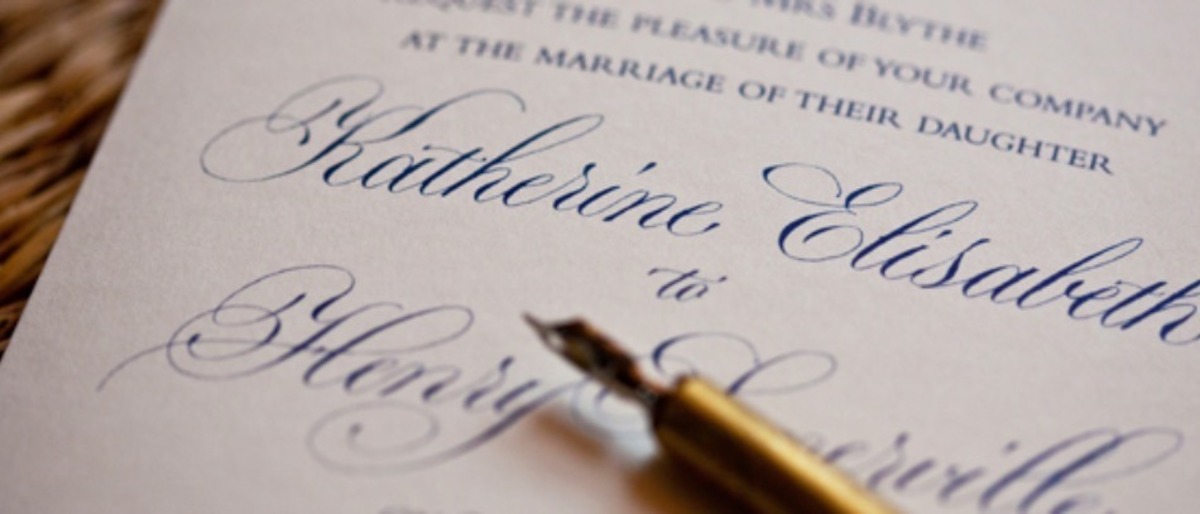 Mrs Blythe
request the pleasure of your company
at the marriage of their daughter
Katherine Elisabeth
to
Henry